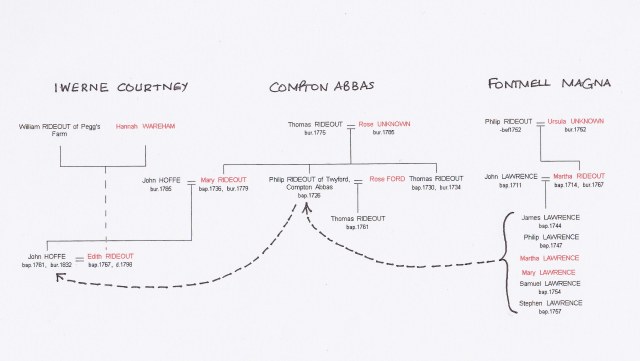 IWERNE COURTNEY
COMPTON ABBAS
FONTMELL MAGNA
William RIDEOUT of Pegg's
Farm
Hannah WAREHAM
Thomas RIDEOUT
bur.1775
Rose UNKNOWN
bur.1785
Philip RIDEOUT
-bef1752
Ursula UNKNOWN
bur.1762
John HOFFE
bur.1785
Mary RIDEOUT
bap.1736, bur.1779
Philip RIDEOUT of Twyford,
Compton Abbas
bap.1726
Rose FORD
Thomas RIDEOUT
bap.1730, bur.1734
John LAWRENCE
bap.1711
Martha RIDEOUT
bap.1714, bur.1767
Thomas RIDEOUT
bap.1761
James LAWRENCE
bap.1744
Philip LAWRENCE
bap.1747
Martha LAWRENCE
Mary LAWRENCE
Samuel LAWRENCE
bap.1754
Stephen LAWRENCE
bap.1757
John HOFFE
bap.1761, bur.1832
Edith RIDEOUT
bap.1757, d.1798